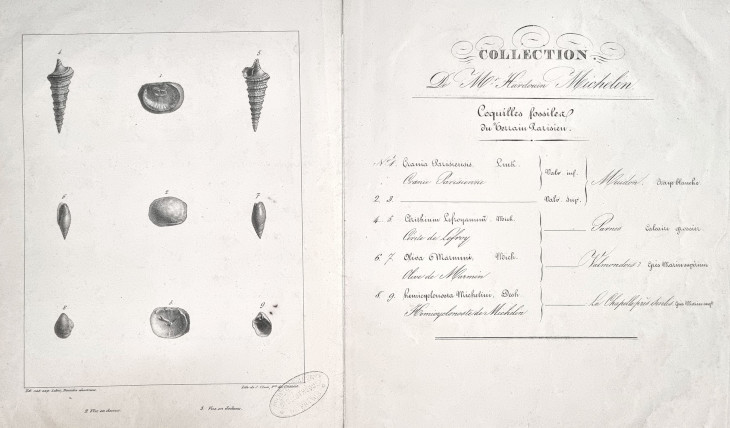 4
1
5
6
2
7
8
3
9
2 Vue en dessus
3 Vue en dedans
COLLECTION.
De Mr. Hardouin Michelin.
Coquilles fossiles
du Terrain Parisien.
No. 1. Crania Parisiensis. Lmk. Valv. inf.
Cranie Parisienne Meudon
2. 3. Valv. sup.
4. 5. Cerithium Lefroyanum. Mich. Parnes Calcaire grossier.
Cerite de Lefroy
6. 7. Oliva Marmini. Mich. Valmondois
Olive de Marmin
8. 9. Hemicyclonosta Michelini. Desh. La Chapelle près Senlis
Hemicyclonoste de Michelin